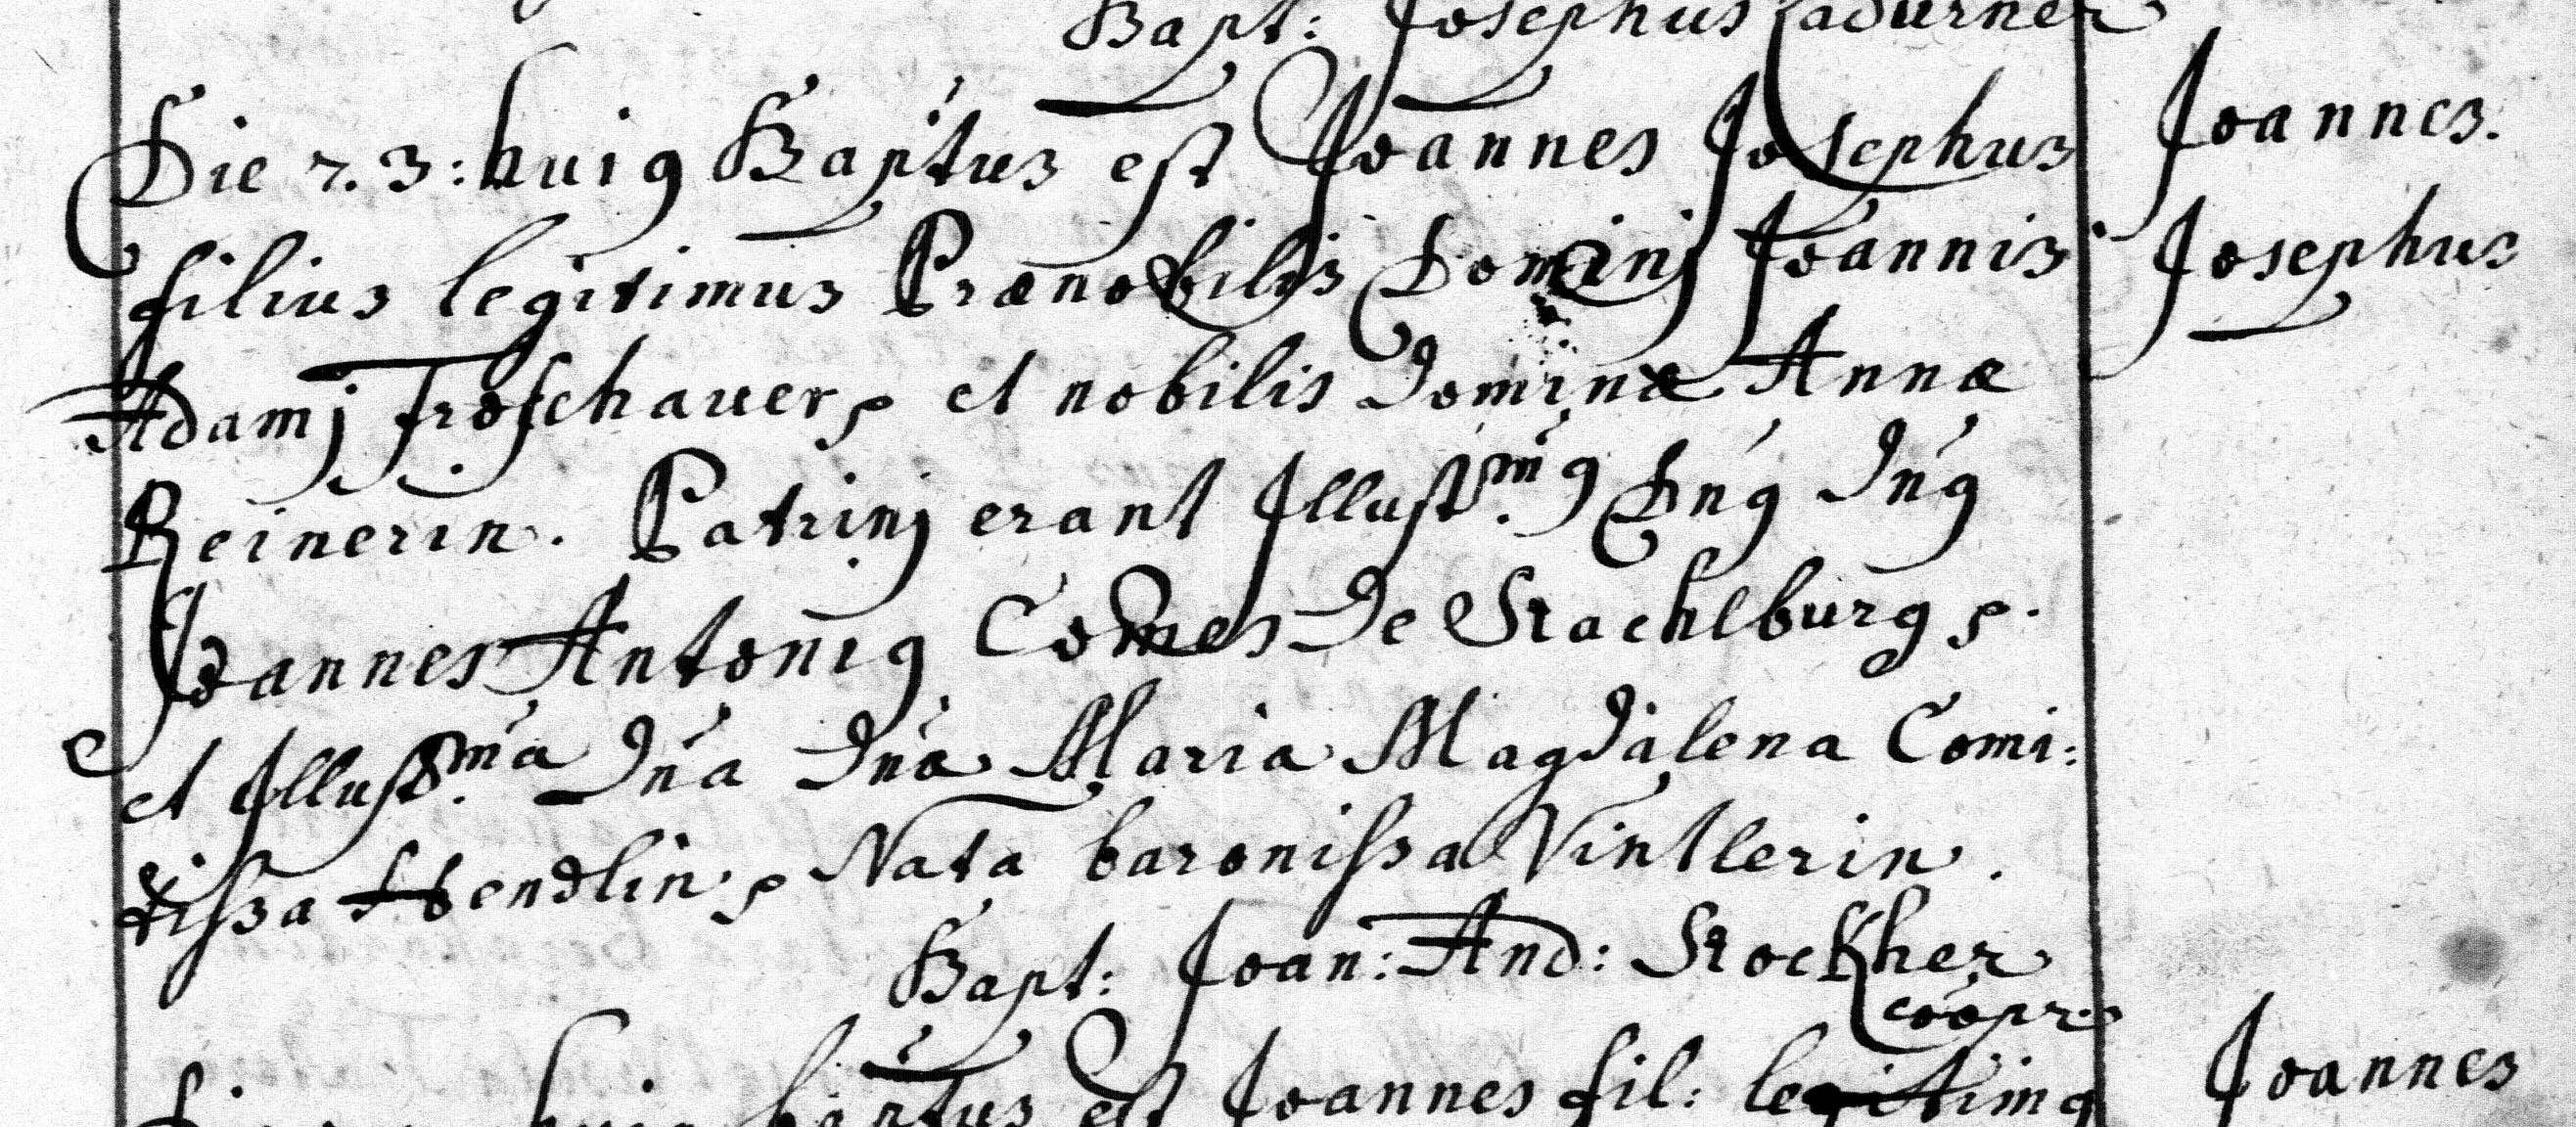 Bapt: Josephus Ladurner
Die 23: huig Bap̃tus est Joannes Josephus
Joannes.
filius legitimus Prænobilis Dominj Joannis
Josephus
Adamj Froschauer, et nobilis Dominæ Annæ
Reinerin. Patrinj erant Jllust.m̃9 Dñ9 Dñ9
Joannes Antoni9 Comes De Stachlburg.
et Jllust.m̃a Dña Dña Maria Magdalena Comi:
tissa Hendlin, Nata baronissa Vintlerin.
Bapt: Joan: And: Stockher
coõpr.
est Joannes fil: legitim9
Joannes